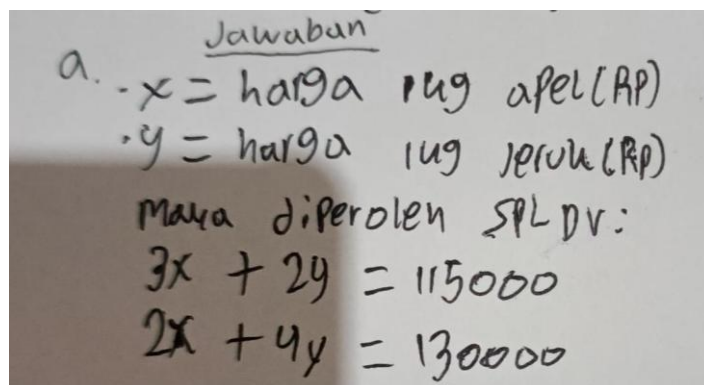 Jawaban
a. • x = harga 1 kg apel (RP)
• y = harga 1 kg jeruk (RP)
Maka diperoleh SPLDV:
3x + 2y = 115000
2x + 4y = 130000